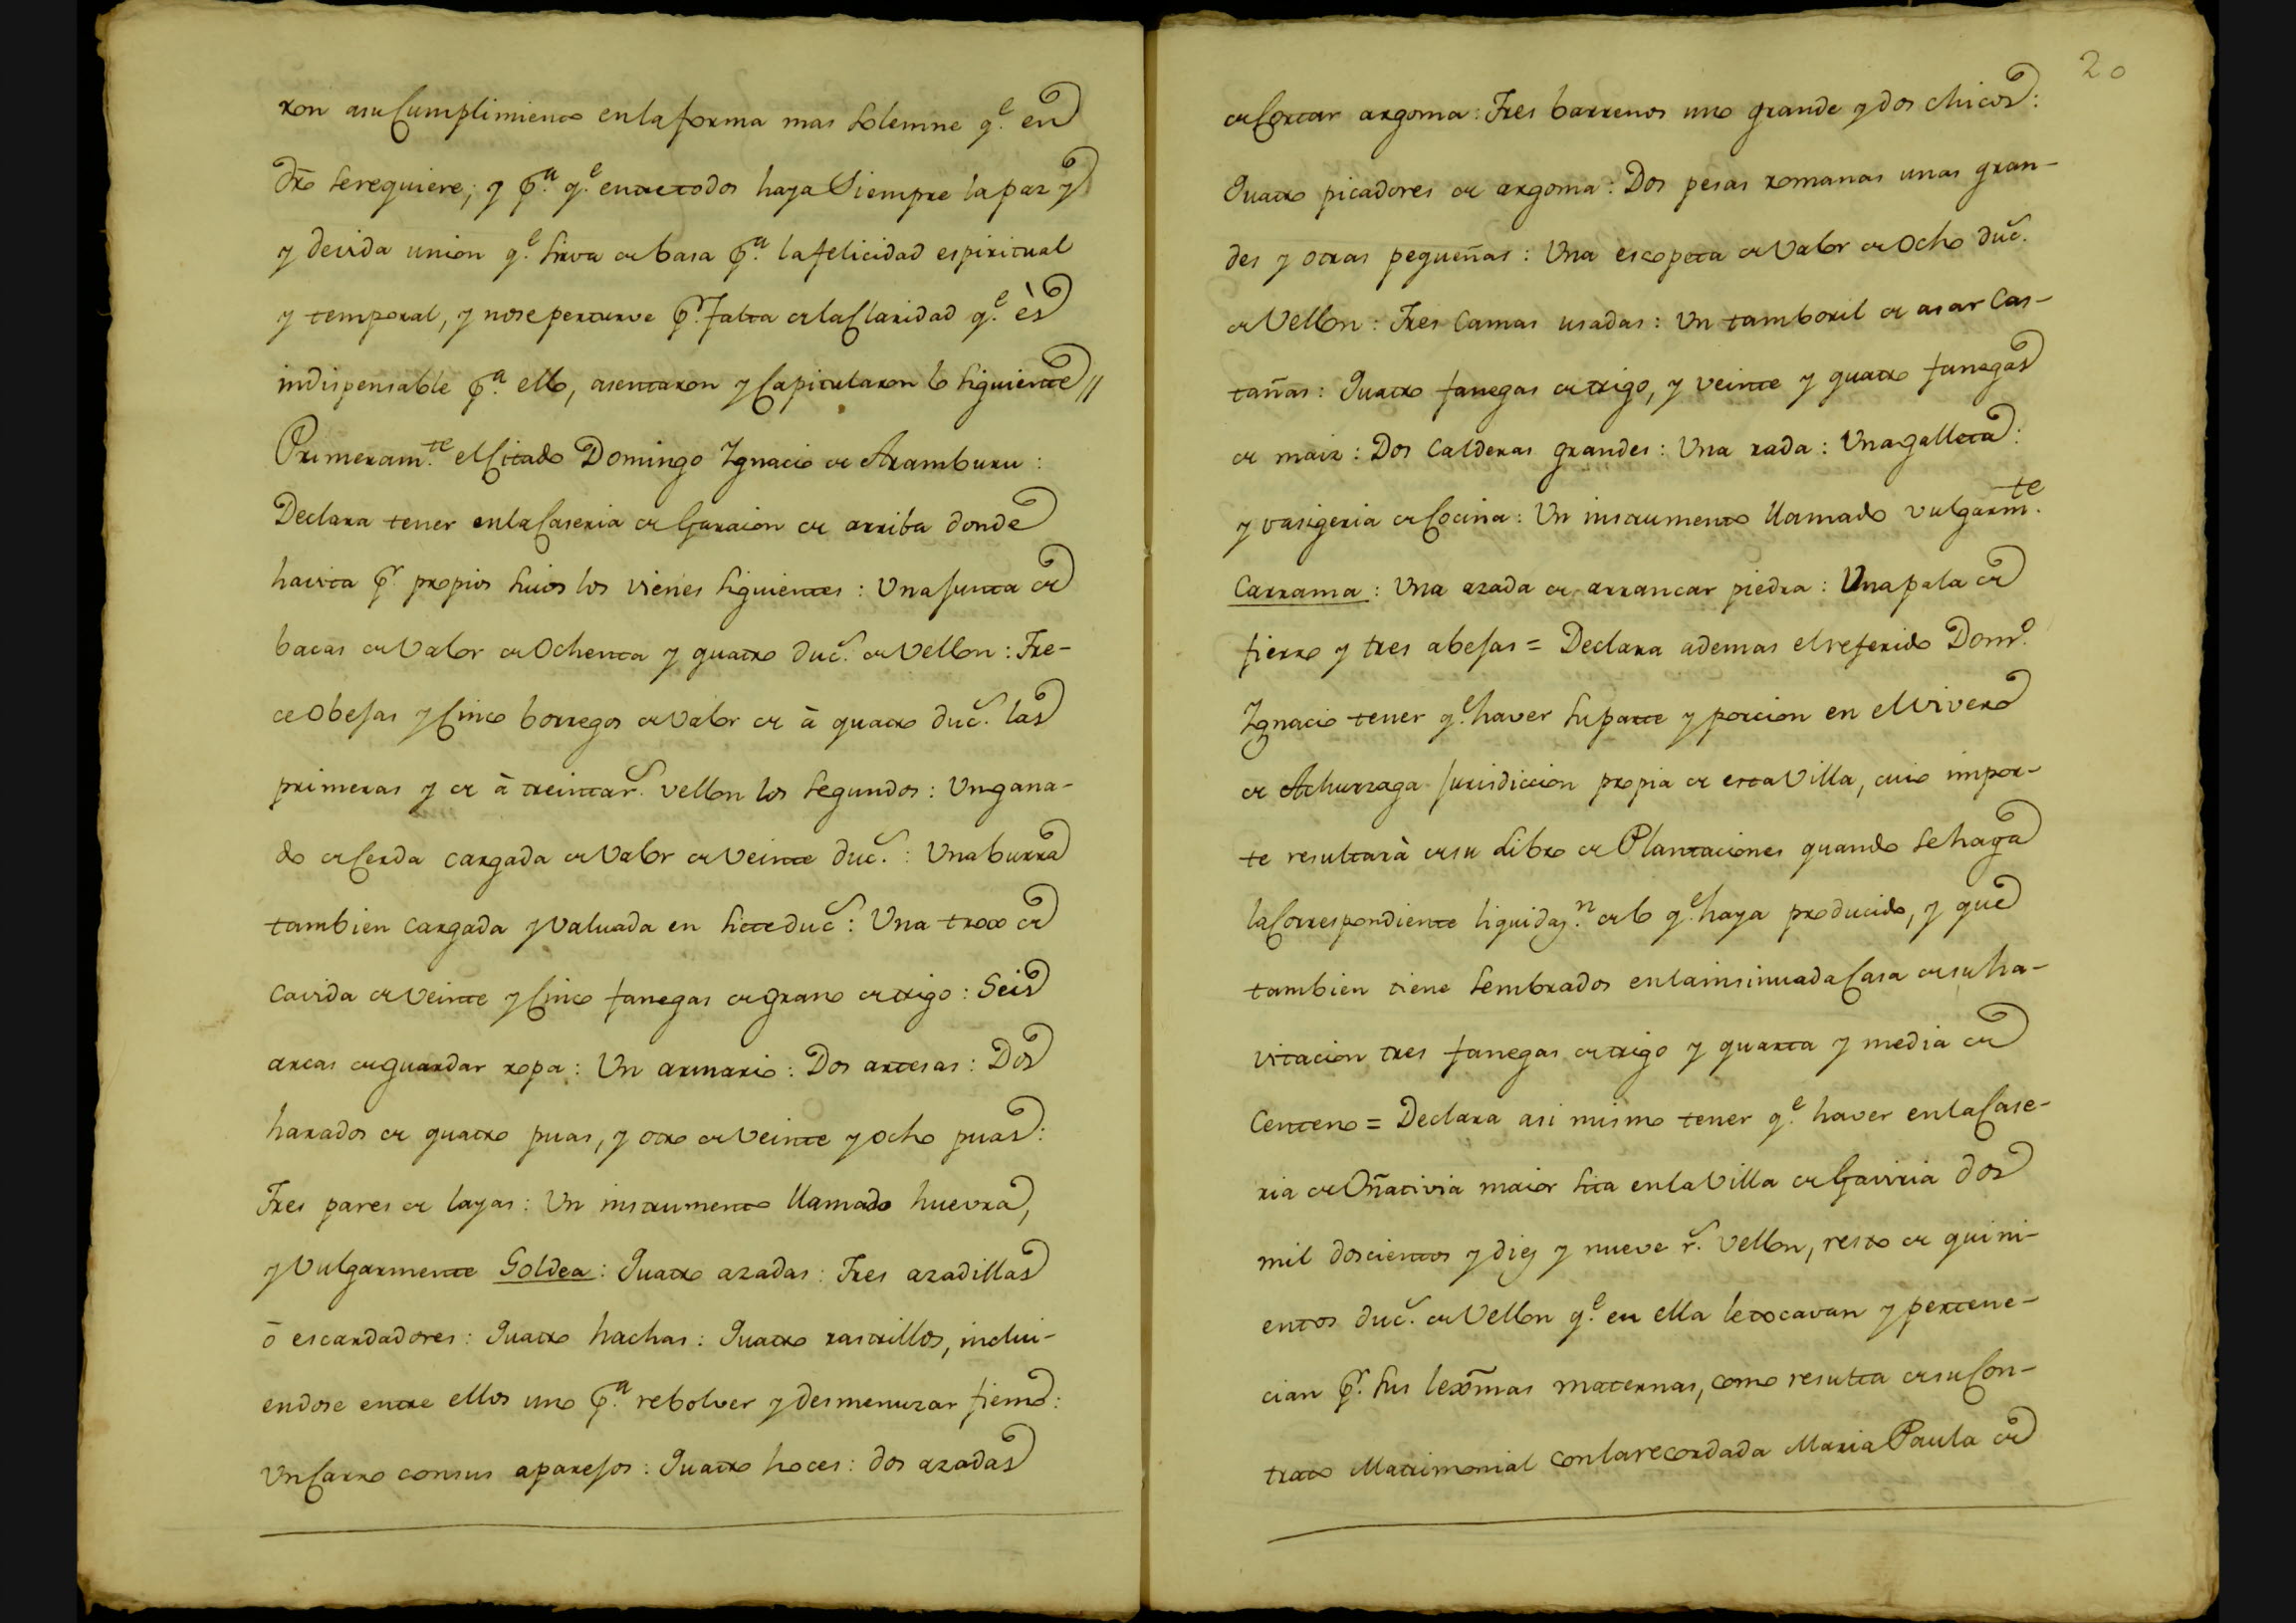 ron asu Cumplimiento enla forma mas Solemne q.e en
dro. Serequiere; y p.a q.e entretodos haya Siempre lapaz y
y devida union q.e Sirva de basa p.a la felicidad espiritual
y temporal, y nose perturve p.r falta de la Claridad q.e ès
indispensable p.a ello, asentaron y Capitularon lo Siguiente //
Primeram.te el Citado Domingo Ygnacio de Aramburu :
Declara tener enla Caseria de Garaion de arriba donde
havita p.r propios Suios los vienes Siguientes : Una Junta de
bacas de Valor de Ochenta y quatro duc.s de Vellon : Tre-
ce Obejas y Cinco borregos de Valor de à quatro duc.s las
primeras y de à treinta r.s vellon los Segundos : Un gana-
do de Cerda cargada de Valor de Veinte duc.s : Una burra
tambien cargada y Valuada en Siete duc.s : Una trox de
cavida de Veinte y Cinco fanegas de grano de trigo : Seis
arcas de guardar ropa : Un armario : Dos artesas : Dos
harados de quatro puas, y otro de Veinte y ocho puas :
Tres pares de layas : Un instrumento llamado huevra,
y Vulgarmente Goldea : Quatro azadas : Tres azadillas
ò escardadores : Quatro hachas : Quatro rastrillos, inclui-
endose entre ellos uno p.a rebolver y desmenuzar fiemo :
Un Carro consus aparejos : Quatro hoces : dos azadas
20
de Cortar argoma : Tres barrenos uno grande y dos chicos :
Quatro picadores de argoma : Dos pesas romanas unas gran-
des y otras pequeñas : Una escopeta de Valor de Ocho duc.s
de Vellon : Tres Camas usadas : Un tamboril de asar Cas-
tañas : Quatro fanegas de trigo, y veinte y quatro fanegas
de maiz : Dos Calderas grandes : Una rada : Una galleta :
y vasigeria de Cocina : Un instrumento llamado vulgarm.te
Carrama : Una azada de arrancar piedra : Una pala de
fierro y tres abejas = Declara ademas el referido Dom.o
Ygnacio tener q.e haver Su parte y porcion en el vivero
de Achurzaga Jurisdiccion propia de esta Villa, cuio impor-
te resultarà de su Libro de Plantaciones quando Sehaga
la Correspondiente liquidaz.n de lo q.e haya producido, y que
tambien tiene Sembrados enla insinuada Casa de su ha-
vitacion tres fanegas de trigo y quarta y media de
Centeno = Declara asi mismo tener q.e haver enla Case-
ria de Oñativia maior Sita enla Villa de Gaviria dos
mil doscientos y diez y nueve r.s Vellon, resto de quini-
entos duc.s de Vellon q.e en ella letocavan y pertene-
cian p.r Sus lexitmas maternas, como resulta de su Con-
trato Matrimonial con la recordada Maria Paula de